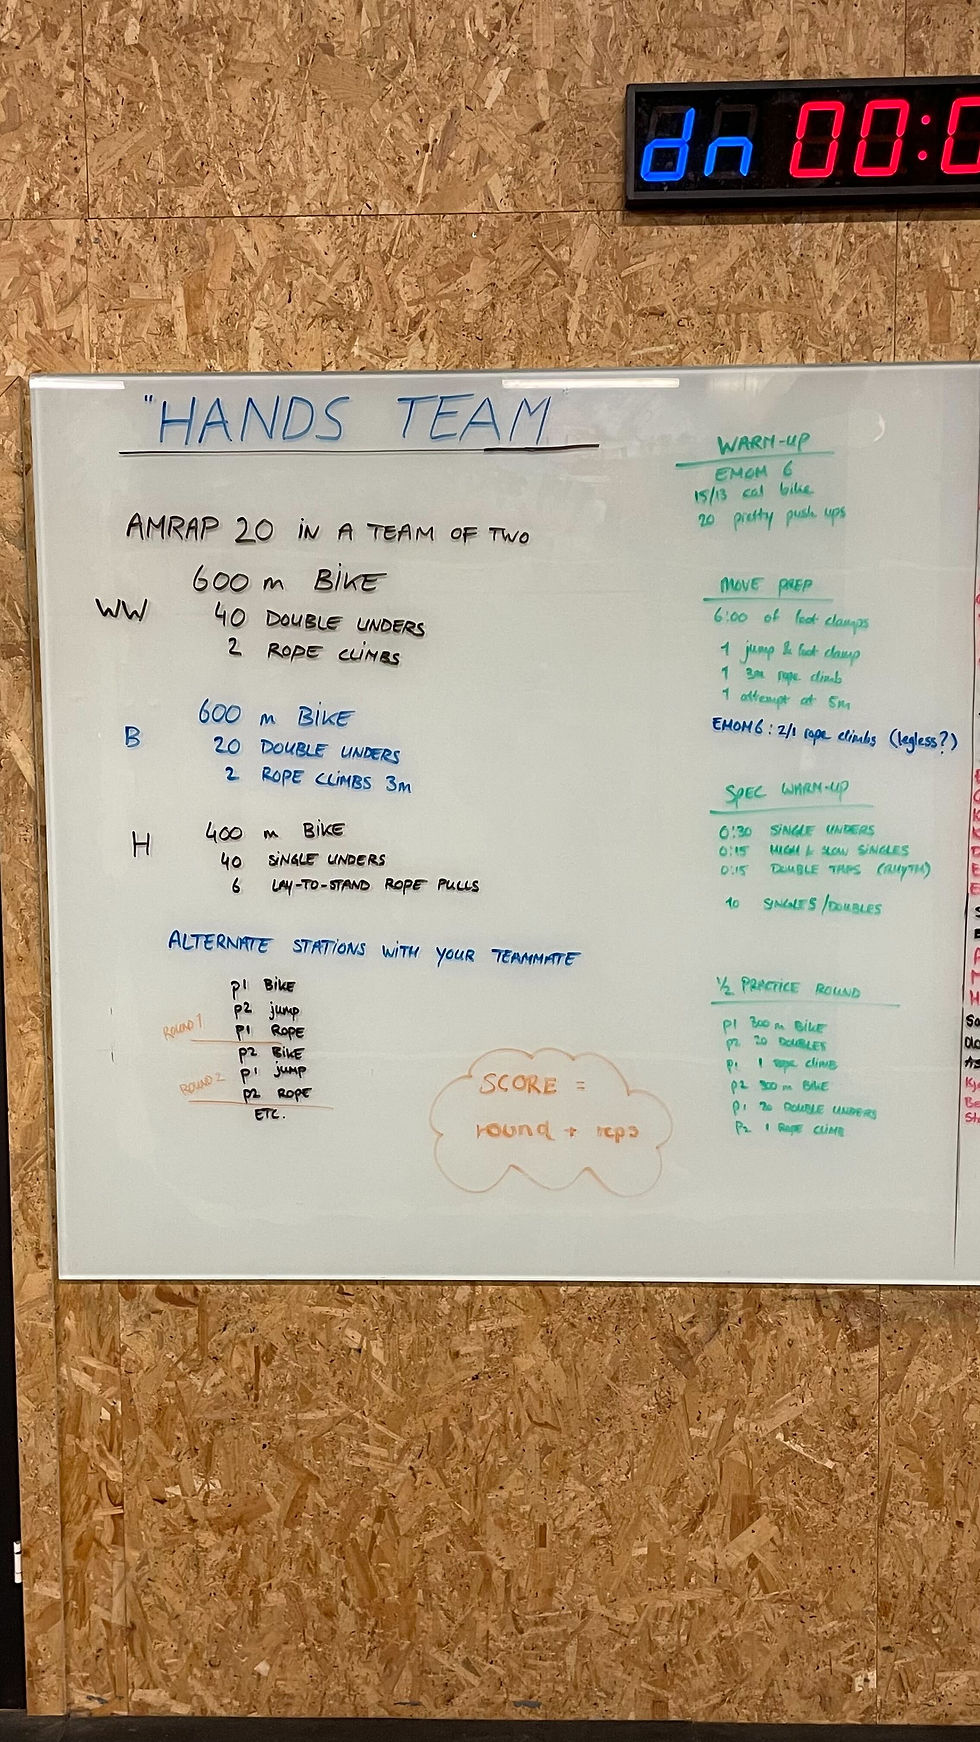 dn 00:0
"HANDS TEAM
AMRAP 20 IN A TEAM OF TWO
WW
600 m BIKE
40 DOUBLE UNDERS
2 ROPE CLIMBS
B
600 m BIKE
20 DOUBLE UNDERS
2 ROPE CLIMBS 3m
H
400 m BIKE
40 SINGLE UNDERS
6 LAY-TO-STAND ROPE PULLS
ALTERNATE STATIONS WITH YOUR TEAMMATE
p1 BIKE
p2 jump
ROUND 1 p1 ROPE
p2 BIKE
p1 jump
ROUND 2 p2 ROPE
ETC.
SCORE =
round + reps
WARM-UP
EMOM 6
15/13 cal bike
20 pretty push ups
MOVE PREP
6:00 of foot clamps
1 jump & foot clamp
1 3m rope climb
1 attempt at 5m
EMOM 6: 2/1 rope climbs (legless?)
SPEC WARM-UP
0:30 SINGLE UNDERS
0:15 HIGH & SLOW SINGLES
0:15 DOUBLE TAPS (RHYTM)
10 SINGLES/DOUBLES
1/2 PRACTICE ROUND
p1 300 m BIKE
p2 20 DOUBLES
p1 1 rope climb
p2 300 m BIKE
p1 20 DOUBLE UNDERS
p2 1 ROPE CLIMB